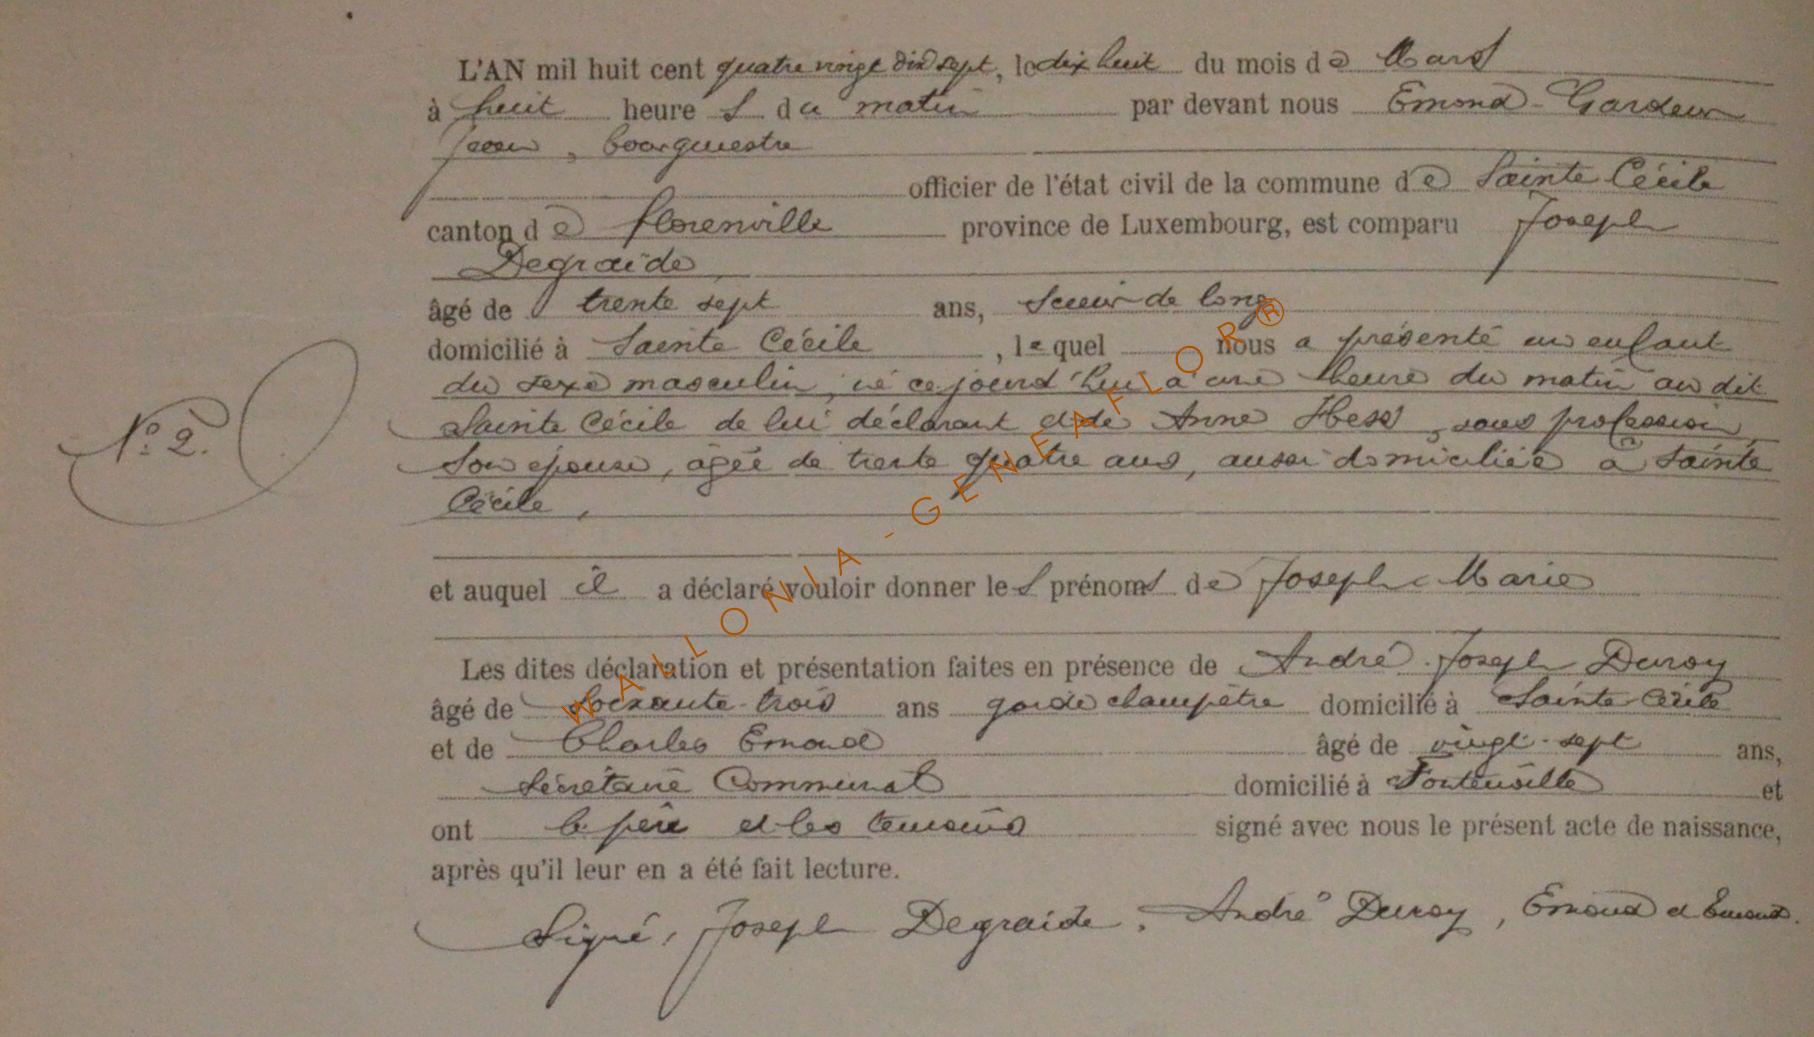 L'AN mil huit cent quatre vingt dix sept, le dix huit du mois de Mars
à huit heure s du matin par devant nous Emond-Gardeur
Jean, bourgmestre
officier de l'état civil de la commune de Sainte Cécile
canton de Florenville province de Luxembourg, est comparu Joseph
Degraide
âgé de trente sept ans, scieur de long
domicilié à Sainte Cécile, lequel nous a présenté un enfant
du sexe masculin, né ce jourd'hui à une heure du matin au dit
N° 2.
Sainte Cécile de lui déclarant et de Anne Hess, sans profession,
son épouse, âgée de trente quatre ans, aussi domiciliée à Sainte
Cécile,
et auquel il a déclaré vouloir donner les prénoms de Joseph Marie
Les dites déclaration et présentation faites en présence de André Joseph Duroy
âgé de soixante-trois ans garde champêtre domicilié à Sainte Cécile
et de Charles Emond âgé de vingt-sept ans,
Secrétaire Communal domicilié à Fontenoille et
ont le père et les témoins signé avec nous le présent acte de naissance,
après qu'il leur en a été fait lecture.
Signé, Joseph Degraide, André Duroy, Emond et Emond.
WALLONIA-GENEAFLOR®